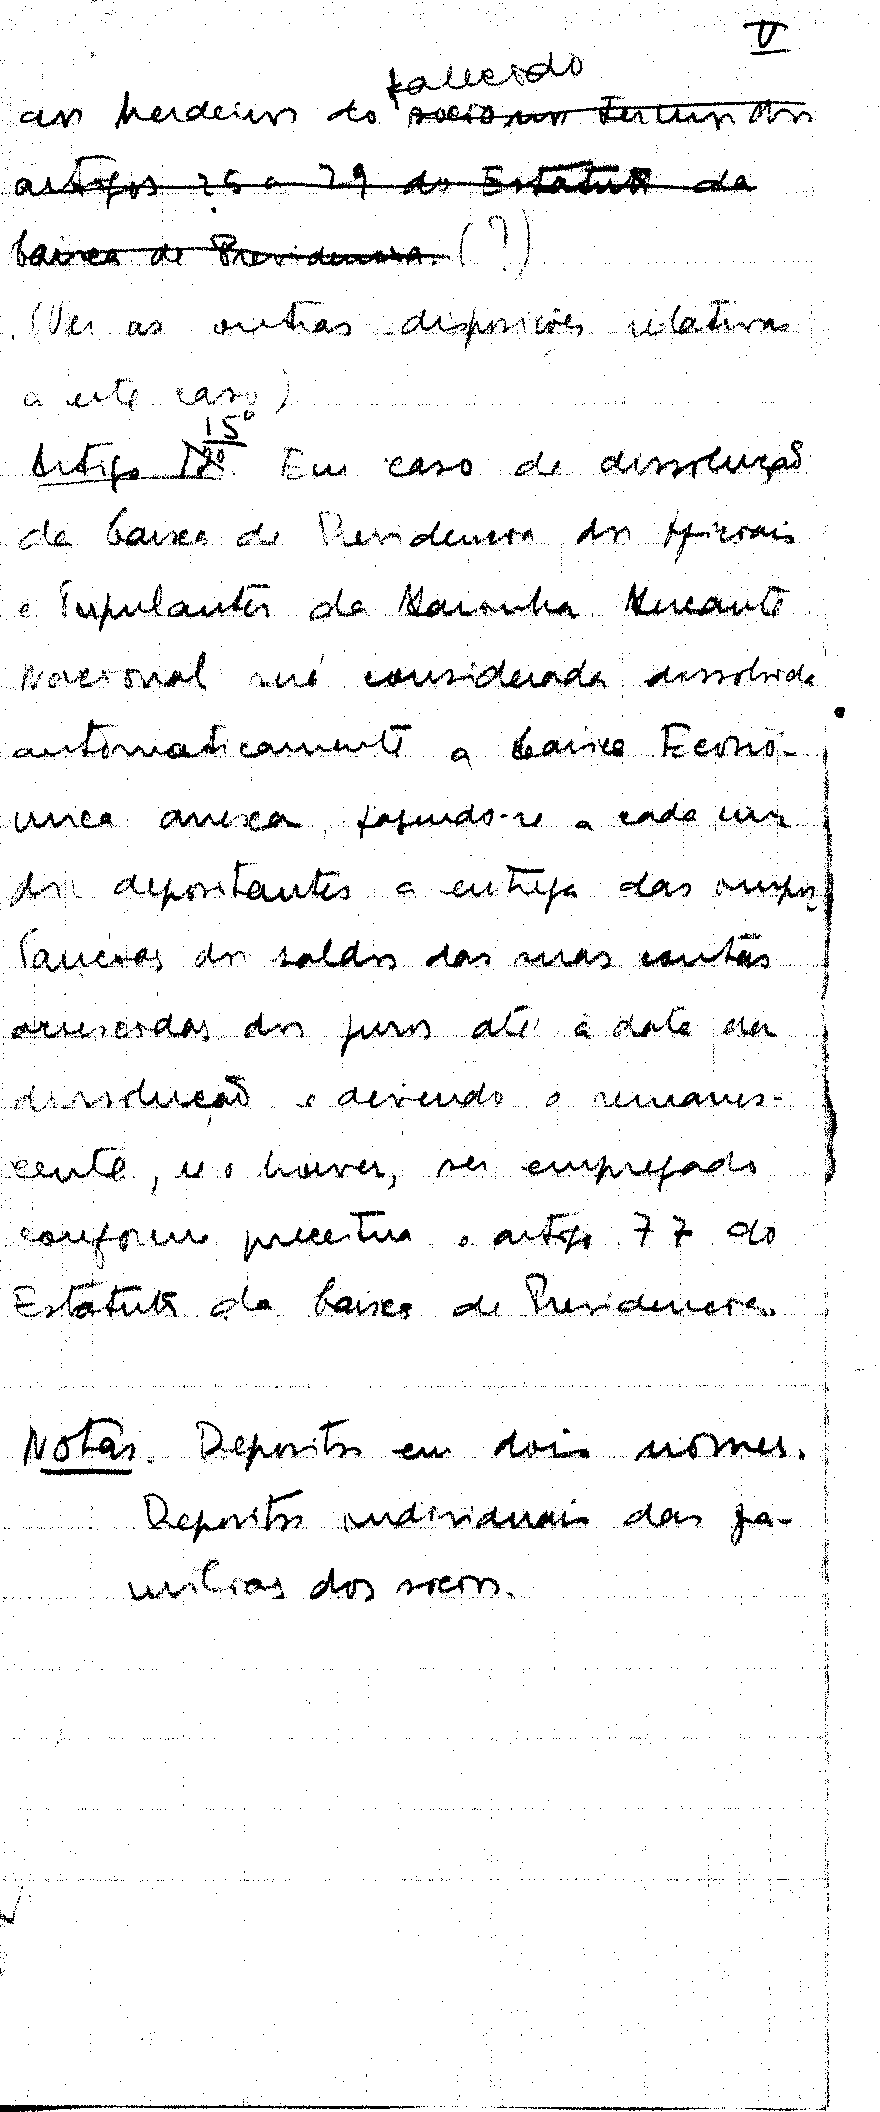 V
fallecido
aos herdeiros do socio nos termos dos
artigos 25 a 29 do Estatuto da
Caixa de Previdencia. (?)
(Ver as outras disposições relativas
a este caso)
15º
Artigo 20. Em caso de dissolução
da Caixa de Previdencia dos Officiais
e Tripulantes da Marinha Mercante
Nacional será considerada dissolvida
automaticamente a Caixa Econó-
mica anexa, fazendo-se a cada um
dos depositantes a entrega das impor-
tancias dos saldos das suas contas
acrescidas dos juros até á data da
dissolução e devendo o remanes-
cente, se o houver, ser empregado
conforme preceitua o artigo 77 do
Estatuto da Caixa de Previdencia.
Notas. Depositos em dois nomes.
Depositos individuais das fa-
milias dos socios.